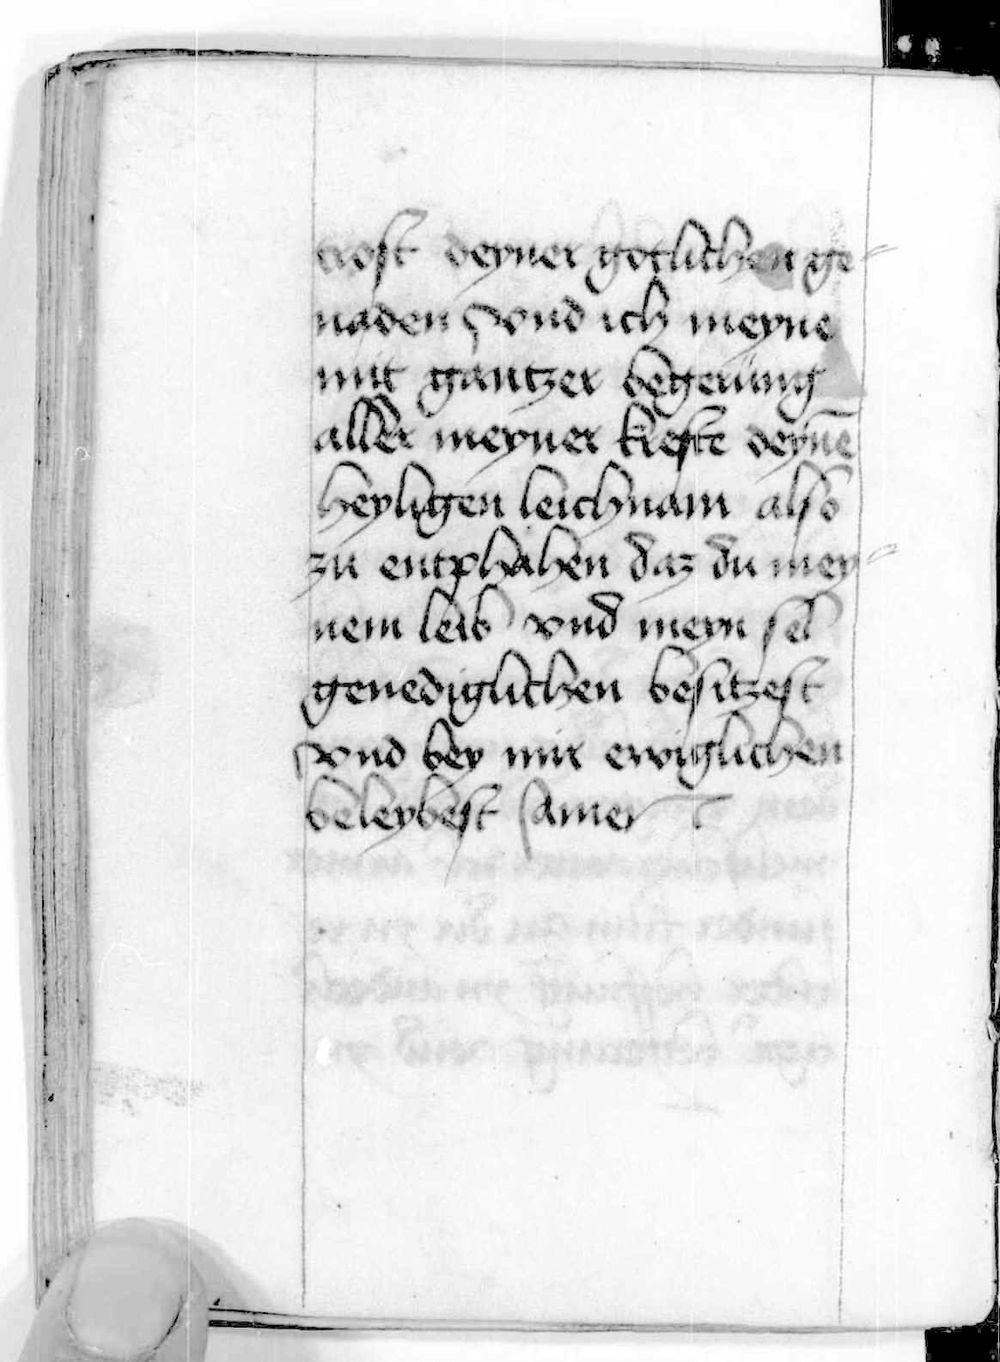 trost deyner gotlichen ge=
naden Vnd ich meyne
mit gantzer begerung
aller meyner krefte deynē
heyligen leichnam also
zu entphahen daz du mey=
nem leib vnd meyn sel
genediglichen besitzest
Vnd bey mir ewiglichen
beleybest Amen